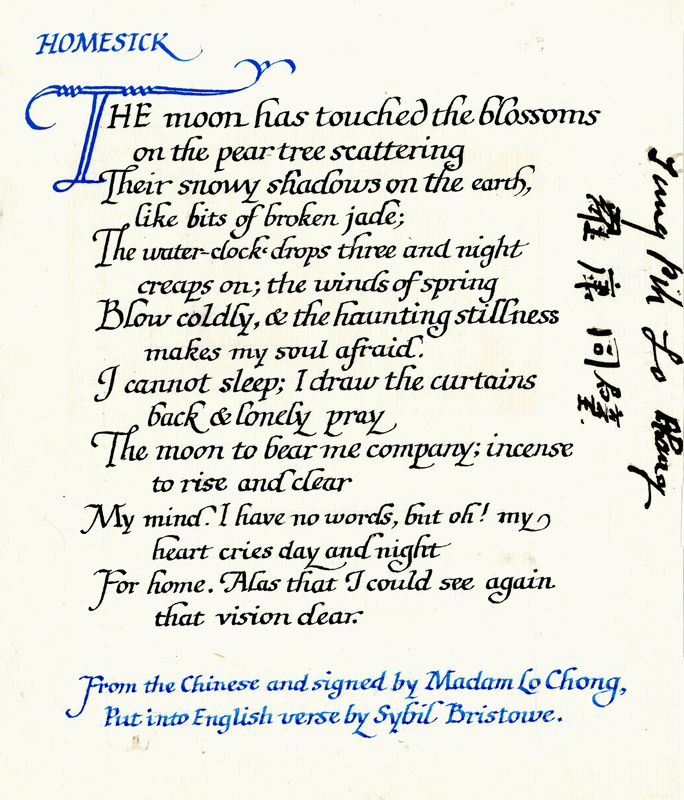 HOMESICK
THE moon has touched the blossoms
on the pear tree scattering
Their snowy shadows on the earth,
like bits of broken jade;
The water-clock drops three and night
creeps on; the winds of spring
Blow coldly, & the haunting stillness
makes my soul afraid.
I cannot sleep; I draw the curtains
back & lonely pray
The moon to bear me company; incense
to rise and clear
My mind. I have no words, but oh! my
heart cries day and night
For home. Alas that I could see again
that vision dear.
From the Chinese and signed by Madam Lo Chong,
Put into English verse by Sybil Bristowe.
羅康同璧
Tung Pih Lo Chong